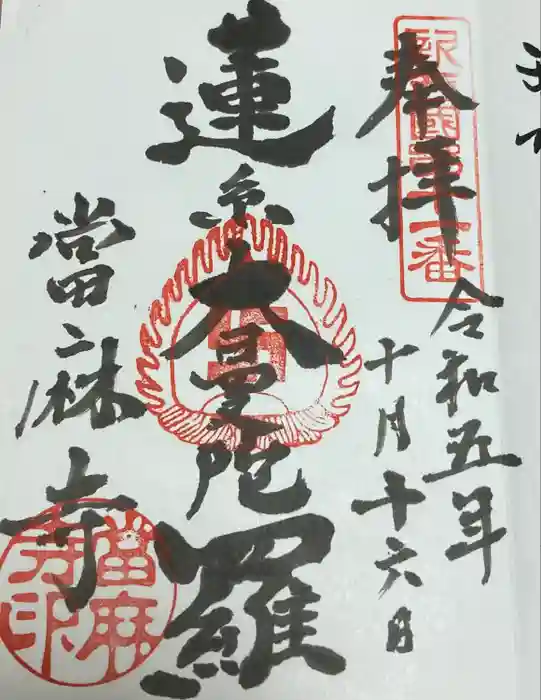 奉拝
令和五年
十月十六日
蓮糸大曼陀羅
當麻寺
番
當麻
寺印